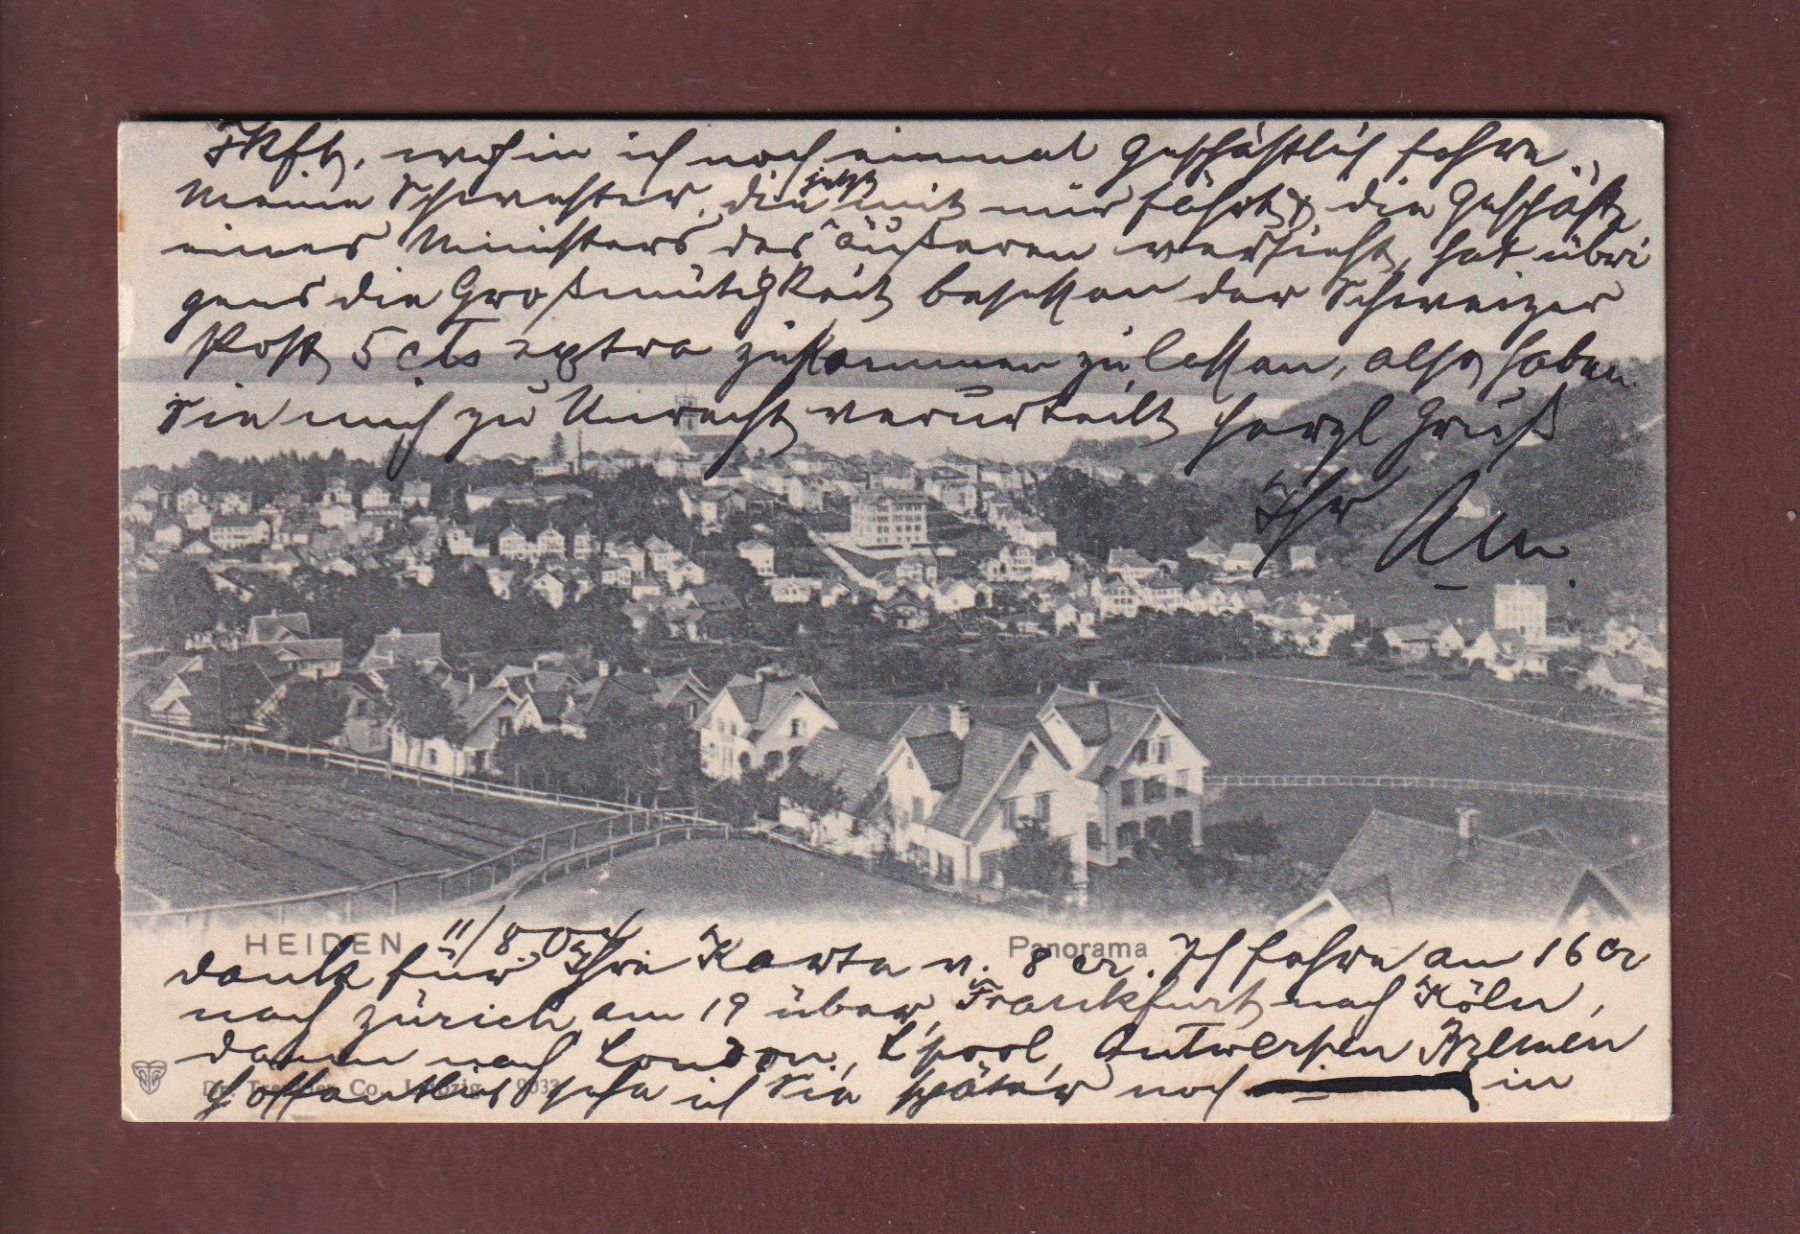 HEIDEN
Panorama
11/8.04
dank für Ihre Karte v. 8 cr. Ich fahre am 16 cr
nach Zürich am 19 über Frankfurt nach Köln,
dann nach London, L'pool, Antwerpen Bremen
hoffentlich sehe ich Sie später noch in
Fkft, wohin ich noch einmal geschäftlich fahre.
Meine Schwester, die jetzt mit mir fährt & die Geschäfte
eines Ministers des Äußeren versieht, hat übri
gens die Großmütigkeit besessen der Schweizer
Post 5 cts extra zukommen zu lassen, also haben
Sie mich zu Unrecht verurteilt herzl Gruß
Ihr
Dr. Trenkler Co., Leipzig. 9033